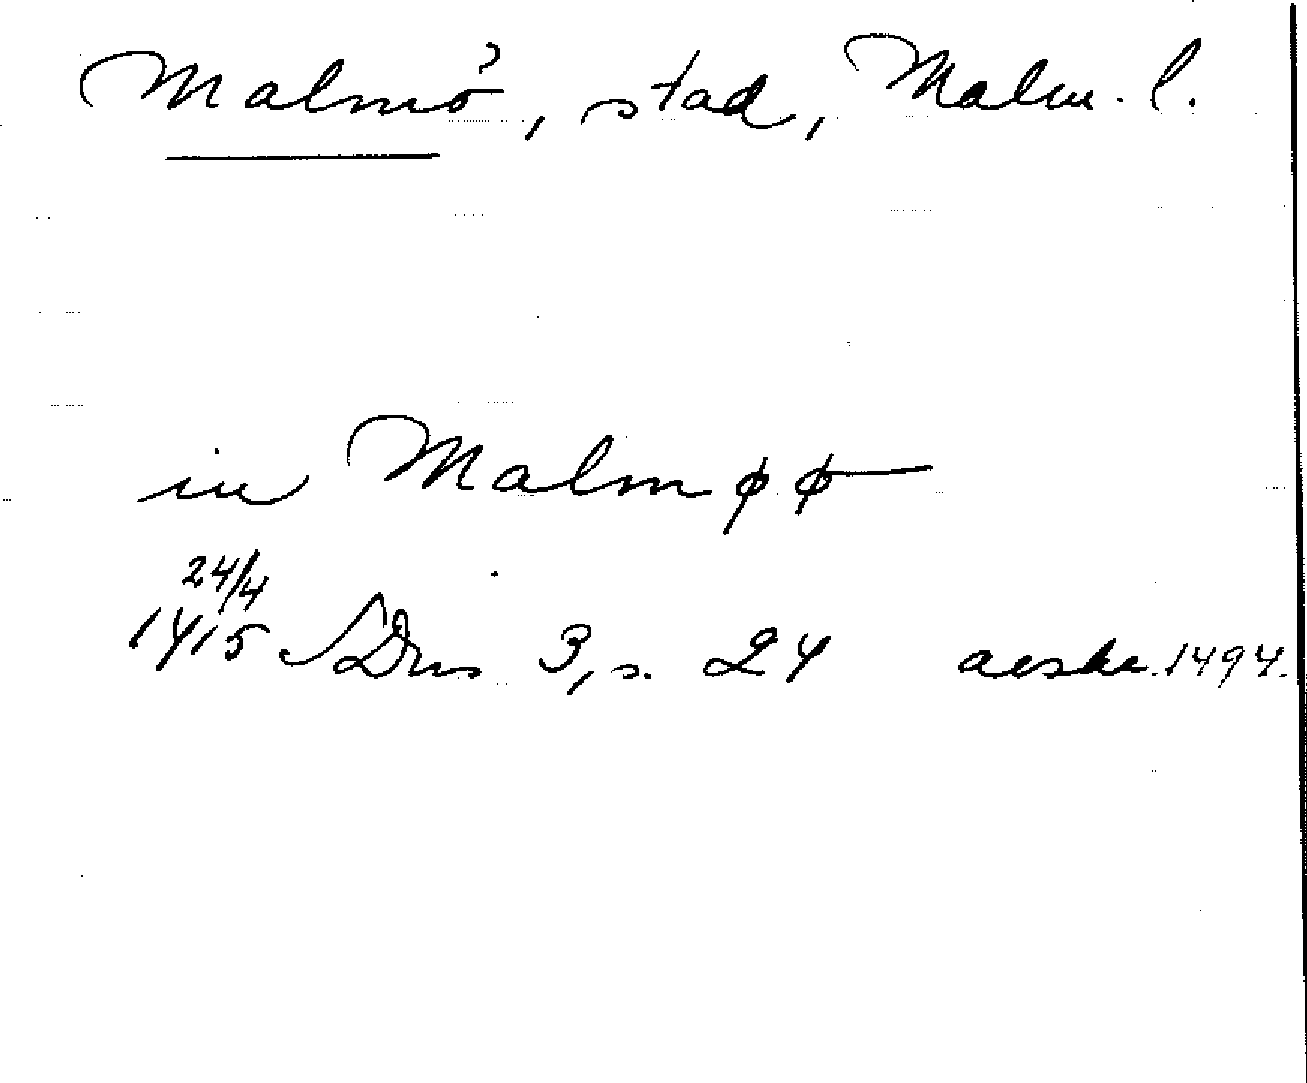 Malmö, stad, Malm. l.
in Malmøø
24/4
1415 SDns 3, s. 24 aeske. 1494.